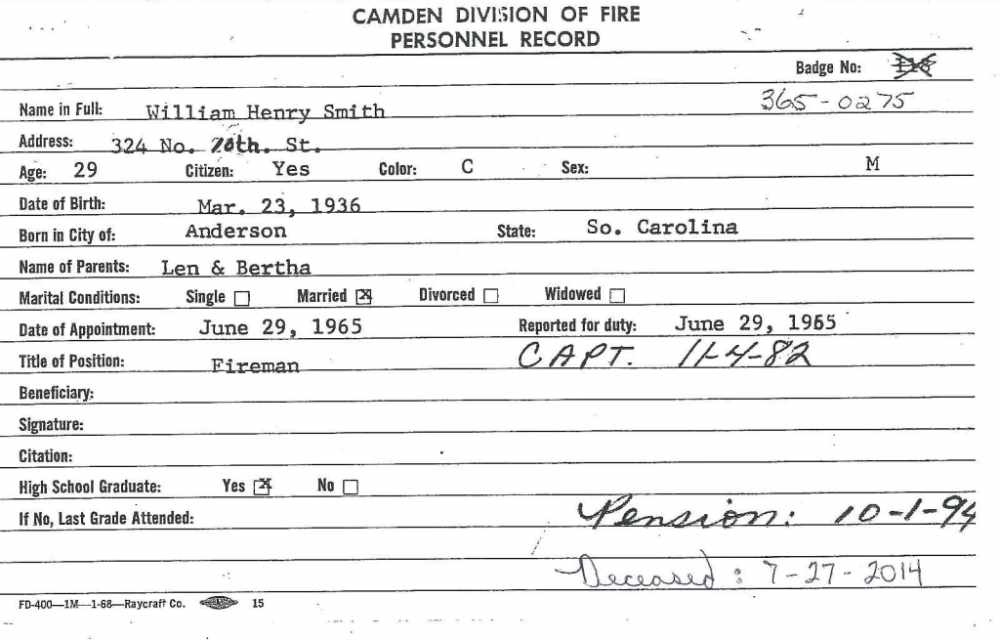 CAMDEN DIVISION OF FIRE
PERSONNEL RECORD
Badge No:
365-0275
Name in Full: William Henry Smith
Address: 324 No. th. St.
Age: 29 Citizen: Yes Color: C Sex: M
Date of Birth: Mar. 23, 1936
Born in City of: Anderson State: So. Carolina
Name of Parents: Len & Bertha
Marital Conditions: Single ☐ Married ☒ Divorced ☐ Widowed ☐
Date of Appointment: June 29, 1965 Reported for duty: June 29, 1965
Title of Position: Fireman CAPT. 11-4-82
Beneficiary:
Signature:
Citation:
High School Graduate: Yes ☒ No ☐
If No, Last Grade Attended: Pension: 10-1-94
Deceased: 7-27-2014
FD-400—1M—1-68—Raycraft Co. 15